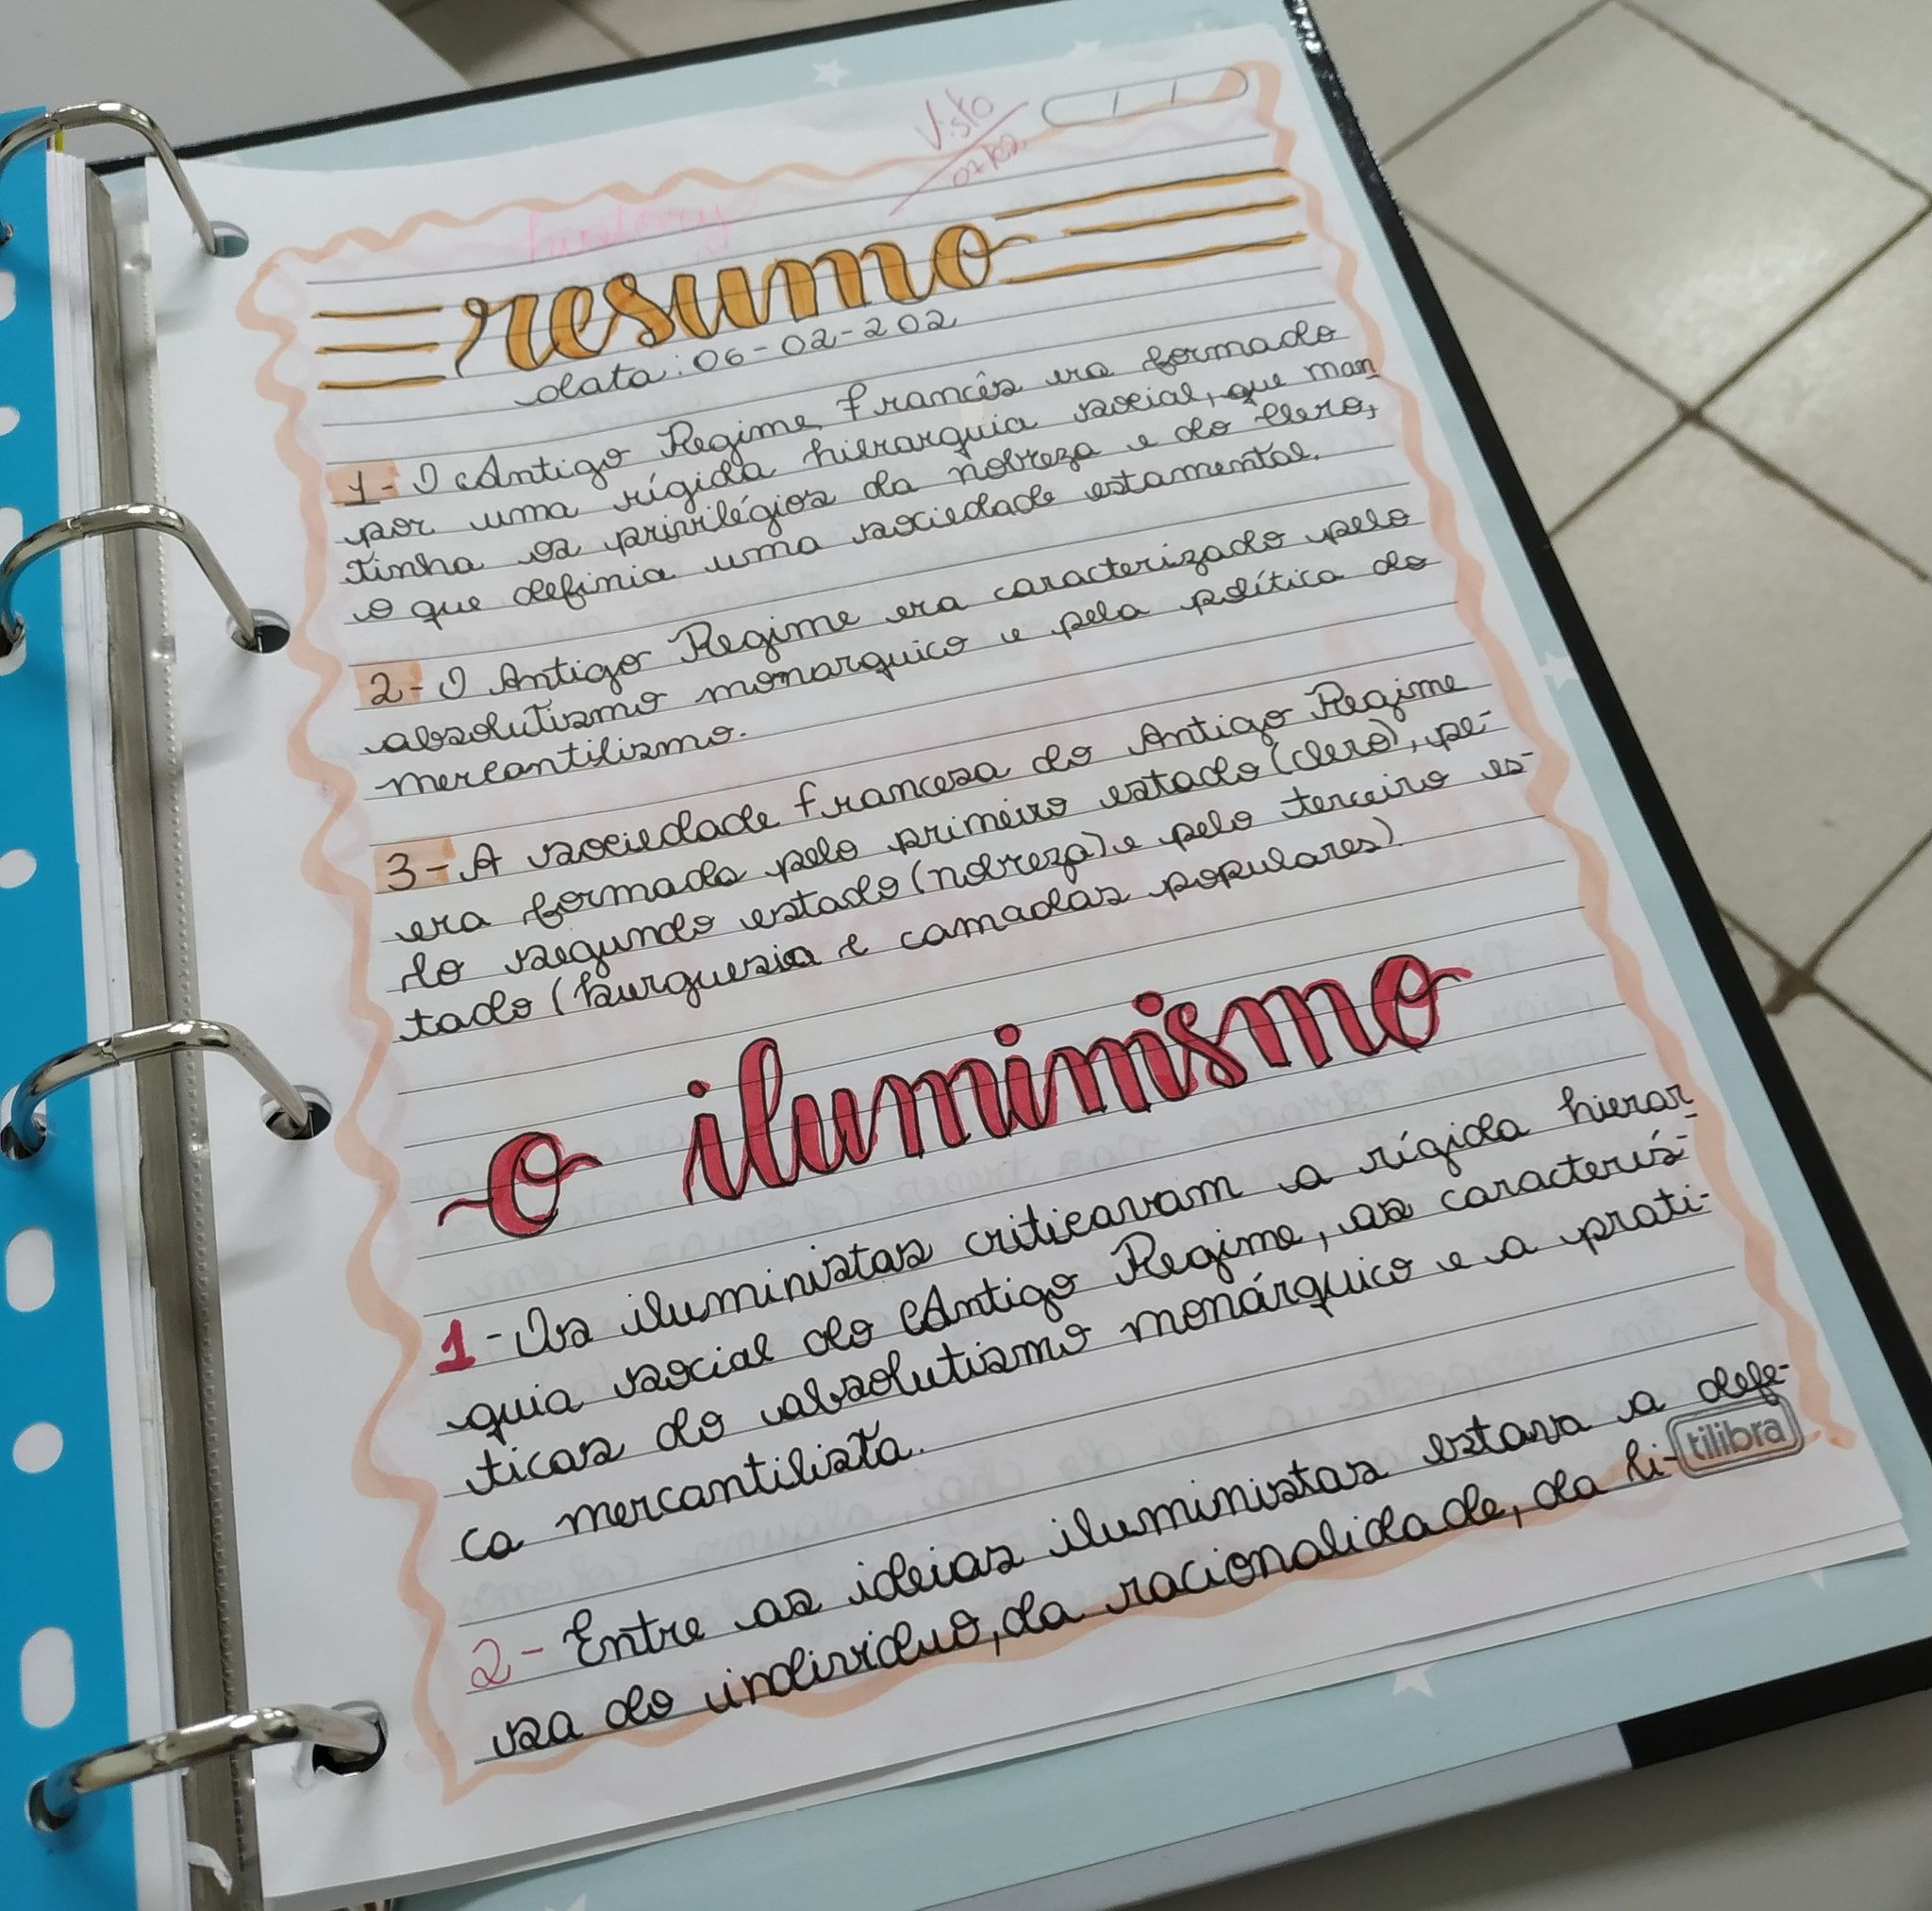 Visto
07/02
history
resumo
data: 06-02-202
1- O Antigo Regime francês era formado
por uma rígida hierarquia social, que man
tinha os privilégios da nobreza e do clero,
o que definia uma sociedade estamental.
2- O Antigo Regime era caracterizado pelo
absolutismo monarquico e pela política do
mercantilismo.
3- A sociedade francesa do Antigo Regime
era formada pelo primeiro estado (clero), pe-
lo segundo estado (nobreza) e pelo terceiro es-
tado (burguesia e camadas populares).
o iluminismo
1- Os iluministas criticavam a rígida hierar
quia social do Antigo Regime, as caracterís-
ticas do absolutismo monárquico e a prati-
ca mercantilista.
2- Entre as ideias iluministas estava a defe-
sa do individuo, da racionalidade, da li-
tilibra